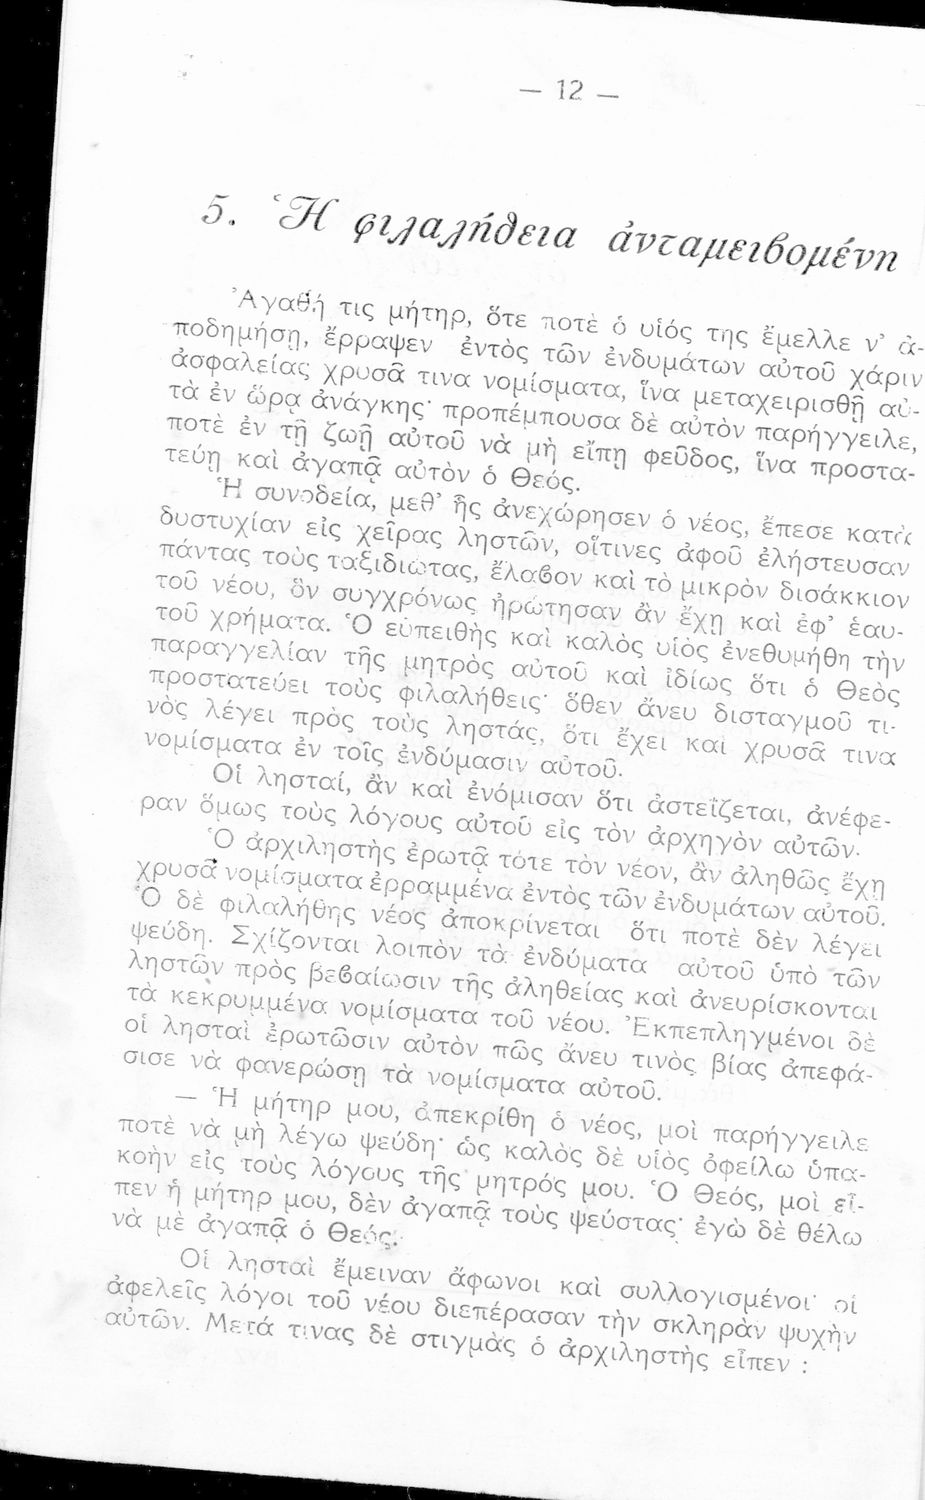 — 12 —
5. Ἡ φιλαλήθεια ἀνταμειβομένη
Ἀγαθή τις μήτηρ, ὅτε ποτὲ ὁ υἱός της ἔμελλε ν’ ἀ-
ποδημήσῃ, ἔρραψεν ἐντὸς τῶν ἐνδυμάτων αὐτοῦ χάριν
ἀσφαλείας χρυσᾶ τινα νομίσματα, ἵνα μεταχειρισθῇ αὐ-
τὰ ἐν ὥρᾳ ἀνάγκης· προπέμπουσα δὲ αὐτὸν παρήγγειλε,
ποτὲ ἐν τῇ ζωῇ αὐτοῦ νὰ μὴ εἴπῃ ψεῦδος, ἵνα προστα-
τεύῃ καὶ ἀγαπᾷ αὐτὸν ὁ Θεός.
Ἡ συνοδεία, μεθ’ ἧς ἀνεχώρησεν ὁ νέος, ἔπεσε κατὰ
δυστυχίαν εἰς χεῖρας ληστῶν, οἵτινες ἀφοῦ ἐλήστευσαν
πάντας τοὺς ταξιδιώτας, ἔλαβον καὶ τὸ μικρὸν δισάκκιον
τοῦ νέου, ὃν συγχρόνως ἠρώτησαν ἂν ἔχῃ καὶ ἐφ’ ἑαυ-
τοῦ χρήματα. Ὁ εὐπειθὴς καὶ καλὸς υἱὸς ἐνεθυμήθη τὴν
παραγγελίαν τῆς μητρὸς αὐτοῦ καὶ ἰδίως ὅτι ὁ Θεὸς
προστατεύει τοὺς φιλαλήθεις· ὅθεν ἄνευ δισταγμοῦ τι-
νὸς λέγει πρὸς τοὺς ληστάς, ὅτι ἔχει καὶ χρυσᾶ τινα
νομίσματα ἐν τοῖς ἐνδύμασιν αὐτοῦ.
Οἱ λησταί, ἂν καὶ ἐνόμισαν ὅτι ἀστεΐζεται, ἀνέφε-
ραν ὅμως τοὺς λόγους αὐτοῦ εἰς τὸν ἀρχηγὸν αὐτῶν.
Ὁ ἀρχιληστὴς ἐρωτᾷ τότε τὸν νέον, ἂν ἀληθῶς ἔχῃ
χρυσᾶ νομίσματα ἐρραμμένα ἐντὸς τῶν ἐνδυμάτων αὐτοῦ.
Ὁ δὲ φιλαλήθης νέος ἀποκρίνεται ὅτι ποτὲ δὲν λέγει
ψεύδη. Σχίζονται λοιπὸν τὰ ἐνδύματα αὐτοῦ ὑπὸ τῶν
ληστῶν πρὸς βεβαίωσιν τῆς ἀληθείας καὶ ἀνευρίσκονται
τὰ κεκρυμμένα νομίσματα τοῦ νέου. Ἐκπεπληγμένοι δὲ
οἱ λησταὶ ἐρωτῶσιν αὐτὸν πῶς ἄνευ τινὸς βίας ἀπεφά-
σισε νὰ φανερώσῃ τὰ νομίσματα αὐτοῦ.
— Ἡ μήτηρ μου, ἀπεκρίθη ὁ νέος, μοὶ παρήγγειλε
ποτὲ νὰ μὴ λέγω ψεύδη· ὡς καλὸς δὲ υἱὸς ὀφείλω ὑπα-
κοὴν εἰς τοὺς λόγους τῆς μητρός μου. Ὁ Θεός, μοὶ εἶ-
πεν ἡ μήτηρ μου, δὲν ἀγαπᾷ τοὺς ψεύστας· ἐγὼ δὲ θέλω
νὰ μὲ ἀγαπᾷ ὁ Θεός.
Οἱ λησταὶ ἔμειναν ἄφωνοι καὶ συλλογισμένοι· οἱ
ἀφελεῖς λόγοι τοῦ νέου διεπέρασαν τὴν σκληρὰν ψυχὴν
αὐτῶν. Μετά τινας δὲ στιγμὰς ὁ ἀρχιληστὴς εἶπεν :